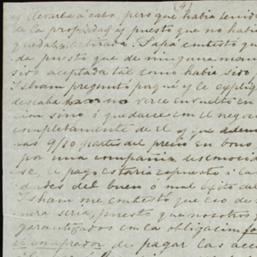 y llevarla á cabo pero que habia tenido
la propiedad y puesto que no habia
quedaba librada. Papá contestó que
de puesto que de ninguna man
sido aceptada tal como habia sido
Isham preguntó porqué y le expliq
deseaba no verse envuelto en
cion sino i quedarse con el negocio
completamente de él y que adem
las 9/10 partes del precio en bono
por una compañia desconocida
se, el pago estaria expuesto á la
dades del buen o mal éxito del
Isham me contestó que eso de
ra seria, puesto que nosotros
garantizados con la obligacion
comprador de pagar las acc